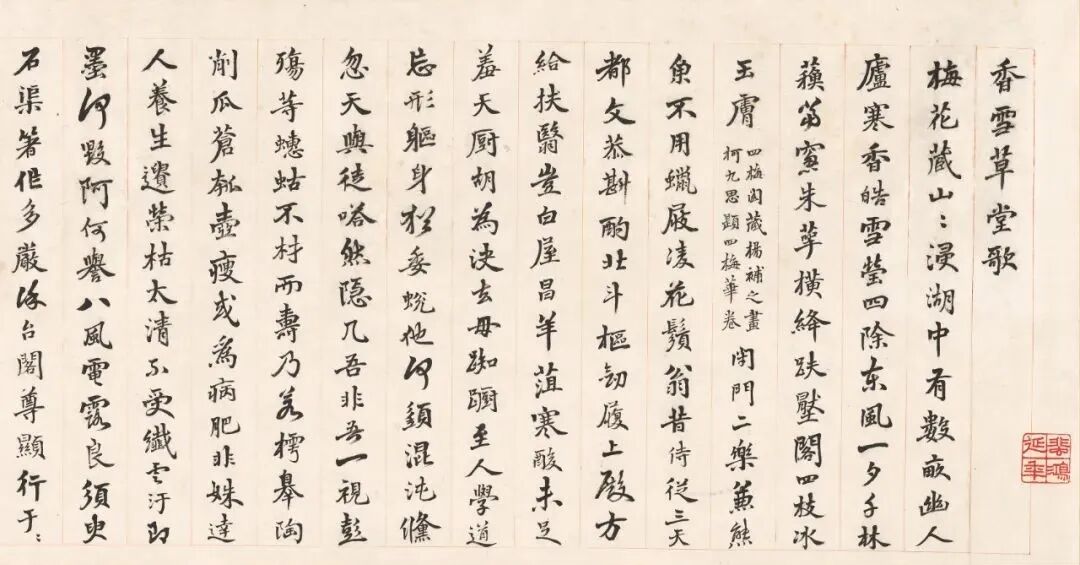 香雪草堂歌
梅花藏山〻浸湖中有數畝幽人
廬寒香皓雪瑩四除東風一夕千林
蘓朱萼橫絳趺壁閣四枝冰
玉膚
四梅閣藏楊補之畫
柯九思題四梅華卷
閉門二樂兼熊
魚不用蠟屐凌花鬚翁昔侍從三天
都文恭斟酌北斗樞劒履上殿方
給扶翳豈白屋昌羊菹寒酸未足
羞天厨胡為決去毋踟躕至人學道
忘形軀身猶委蛻他何須混沌儵
忽天與徒嗒然隱几吾非吾一視彭
殤等蟪蛄不材而壽乃若樗皋陶
削瓜蒼瓠壺瘦或為病肥非姝達
人養生遺榮枯太清不受纖雲汙即
墨何毀阿何譽八風電露良須臾
石渠著作多嚴徐台閣尊顯行于〻
悲鴻延年